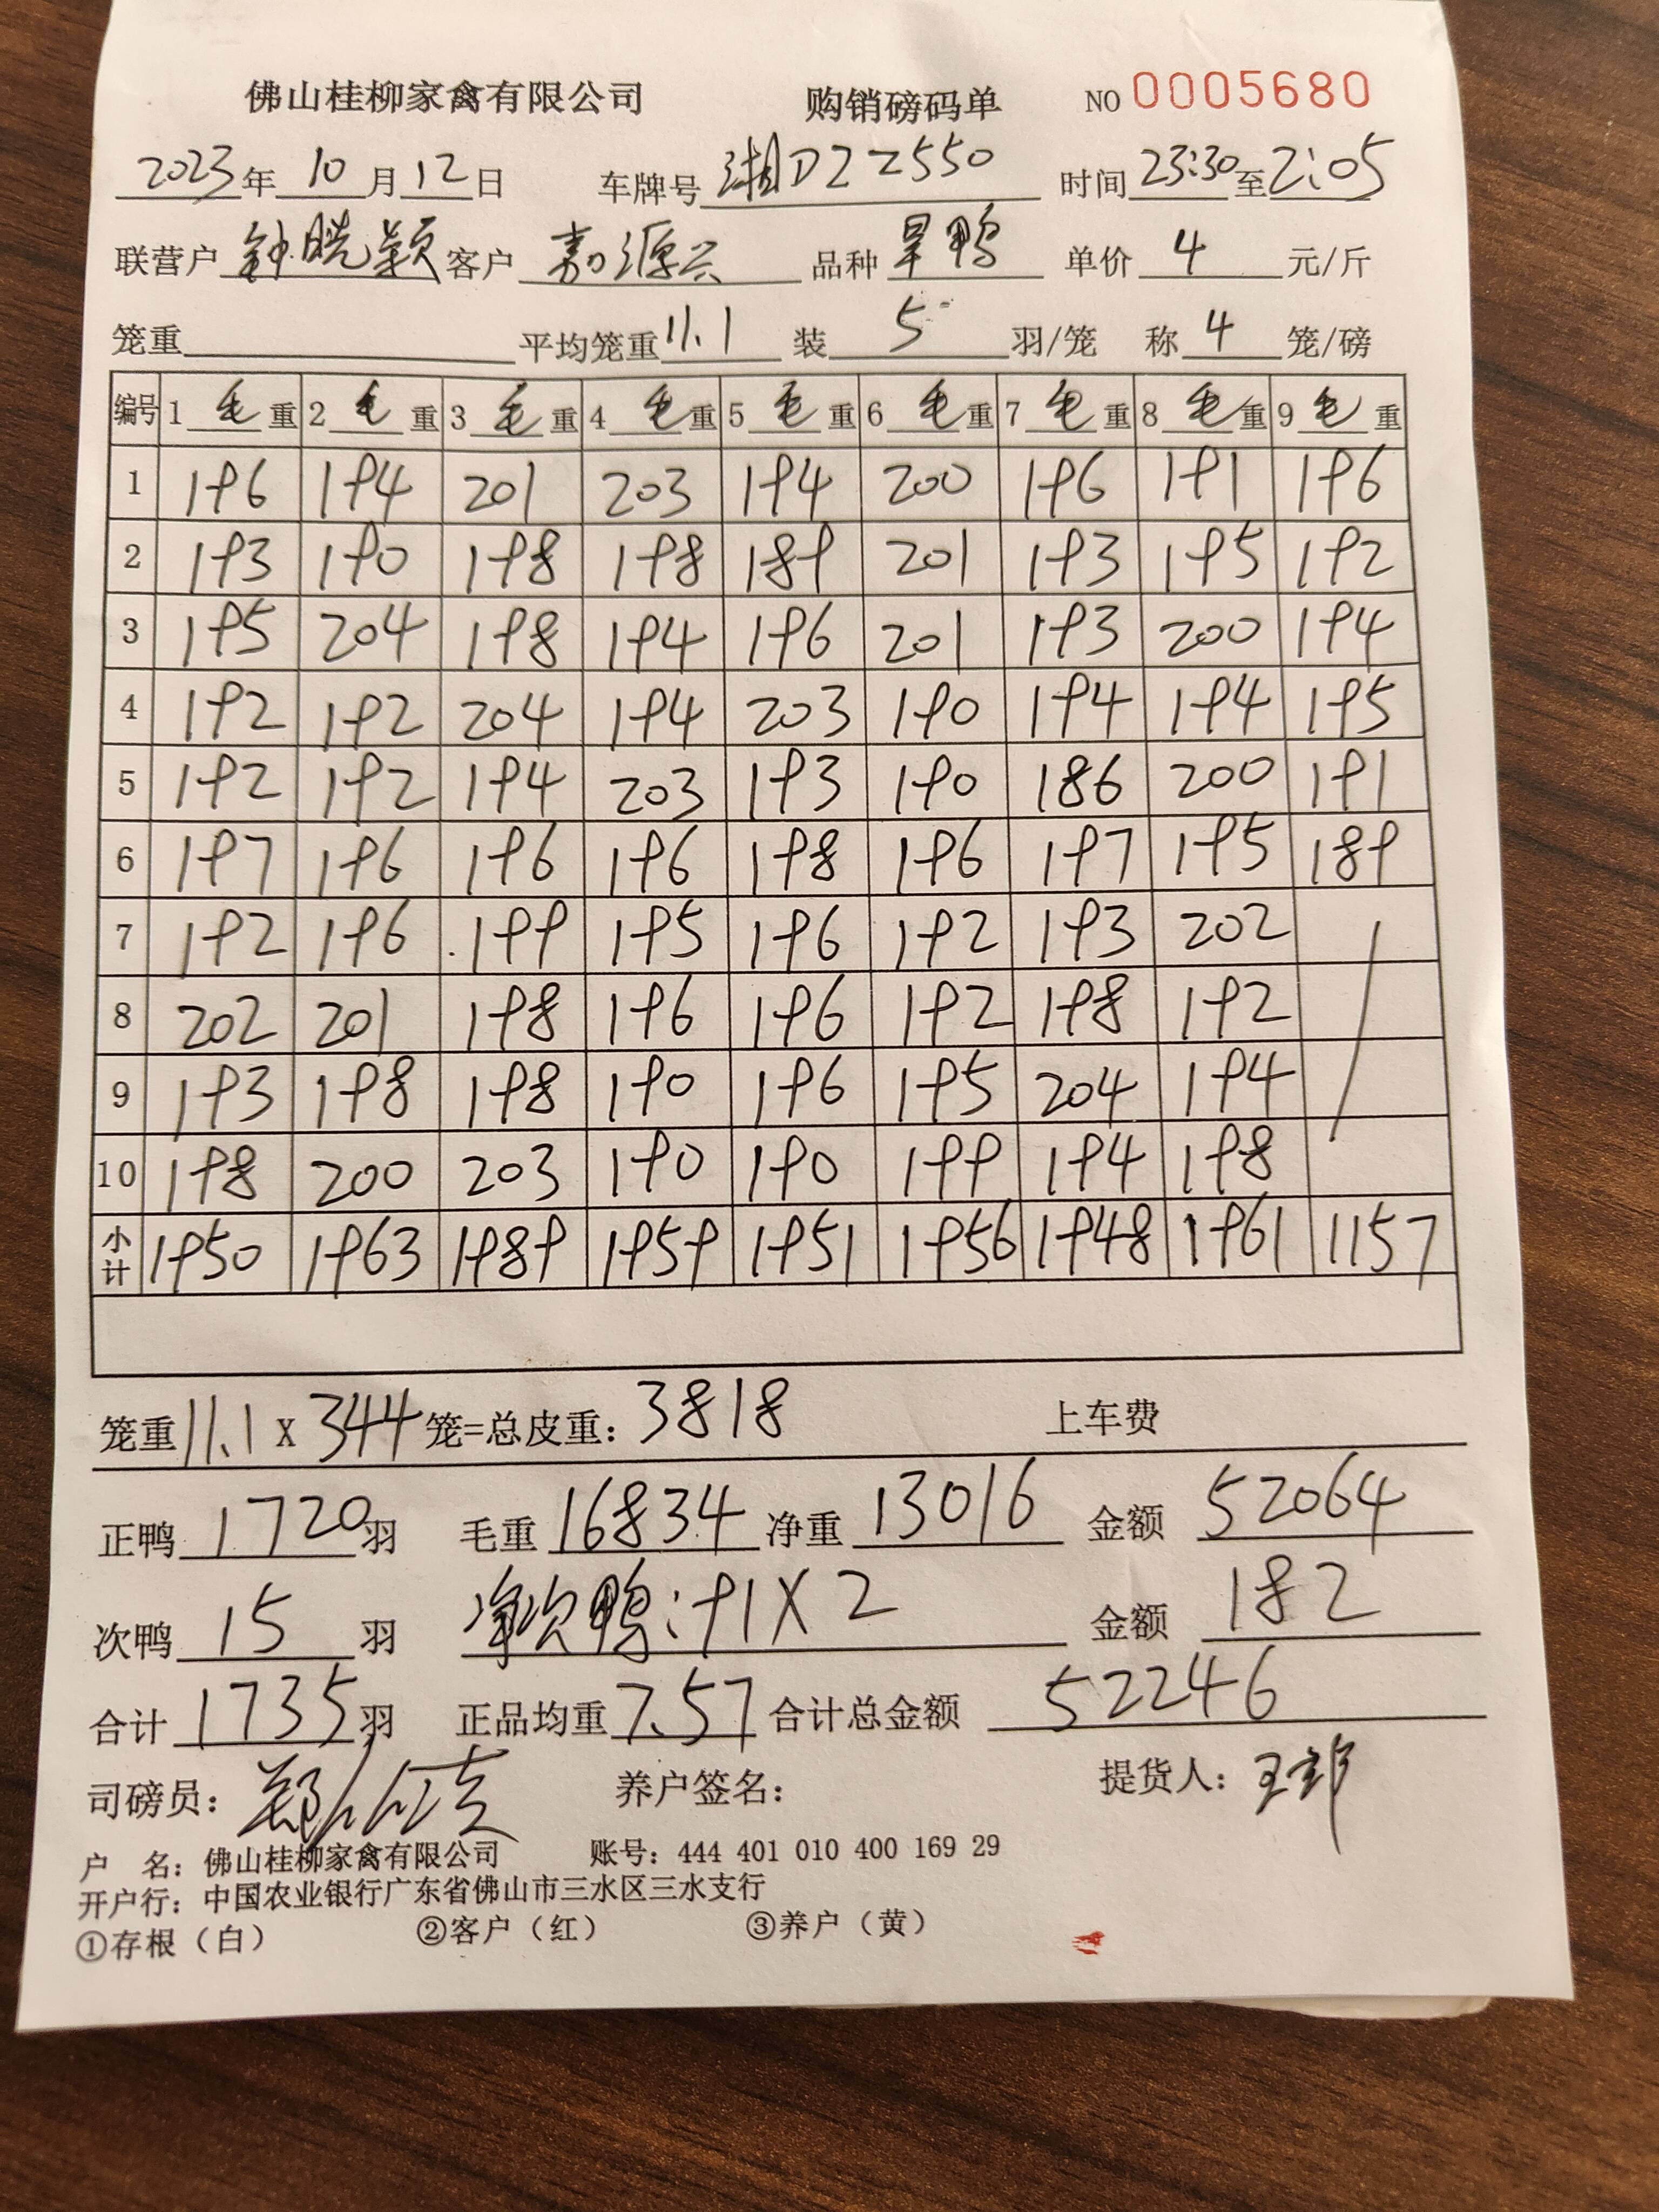 佛山桂柳家禽有限公司 购销磅码单 NO 0005680
2023年10月12日 车牌号 湘DZZ550 时间 23:30至2:05
联营户 钟晓颖 客户 嘉源兴 品种 旱鸭 单价 4 元/斤
笼重 平均笼重 11.1 装 5 羽/笼 称 4 笼/磅
编号 1 毛 重 2 毛 重 3 毛 重 4 毛 重 5 毛 重 6 毛 重 7 毛 重 8 毛 重 9 毛 重
1 196 194 201 203 194 200 196 191 196
2 193 190 198 198 189 201 193 195 192
3 195 204 198 194 196 201 193 200 194
4 192 192 204 194 203 190 194 194 195
5 192 192 194 203 193 190 186 200 191
6 197 196 196 196 198 196 197 195 189
7 192 196 199 195 196 192 193 202
8 202 201 198 196 196 192 198 192
9 193 198 198 190 196 195 204 194
10 198 200 203 190 190 199 194 198
小计 1950 1963 1989 1959 1951 1956 1948 1961 1157
笼重 11.1 X 344 笼=总皮重: 3818 上车费
正鸭 1720 羽 毛重 16834 净重 13016 金额 52064
次鸭 15 羽 净次鸭:91X2 金额 182
合计 1735 羽 正品均重 7.57 合计总金额 52246
司磅员: 养户签名: 提货人:
户 名: 佛山桂柳家禽有限公司 账号: 444 401 010 400 169 29
开户行: 中国农业银行广东省佛山市三水区三水支行
①存根（白） ②客户（红） ③养户（黄）